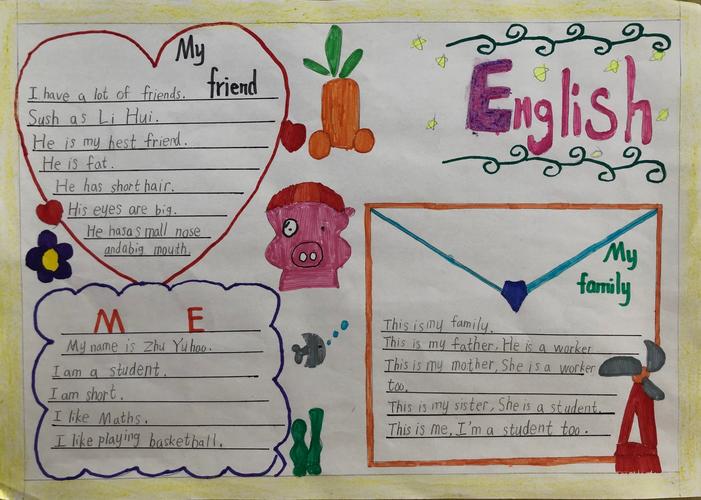 My
friend
I have a lot of friends.
Sush as Li Hui.
He is my best friend.
He is fat.
He has short hair.
His eyes are big.
He has a small nose
and a big mouth.
English
M E
My name is Zhu Yuhao.
I am a student.
I am short.
I like Maths.
I like playing basketball.
My
family
This is my family.
This is my father. He is a worker
This is my mother. She is a worker
too.
This is my sister. She is a student.
This is me. I'm a student too.